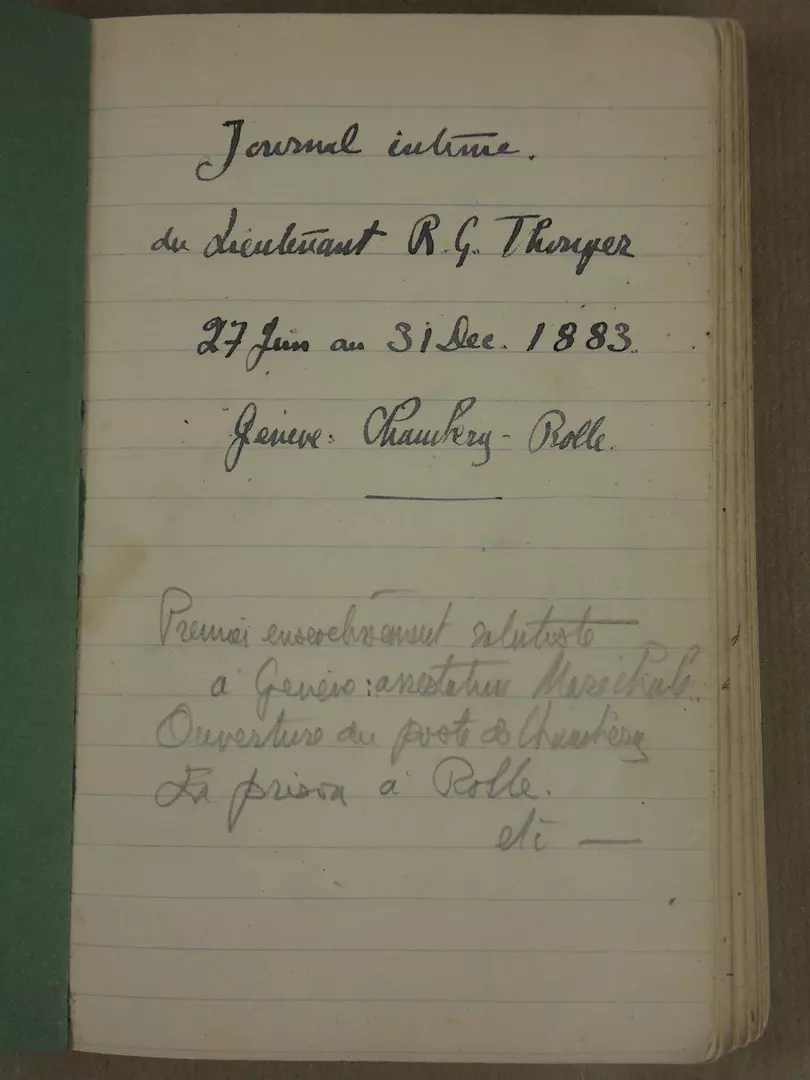 Journal intime.
du Lieutenant R. G. Thonger
27 Juin au 31 Dec. 1883.
Genève: Chambéry - Rolle.
Premier ensevelissement salutiste
à Genève: arrestation Maréchale.
Ouverture du poste de Chambéry
La prison à Rolle.
etc —